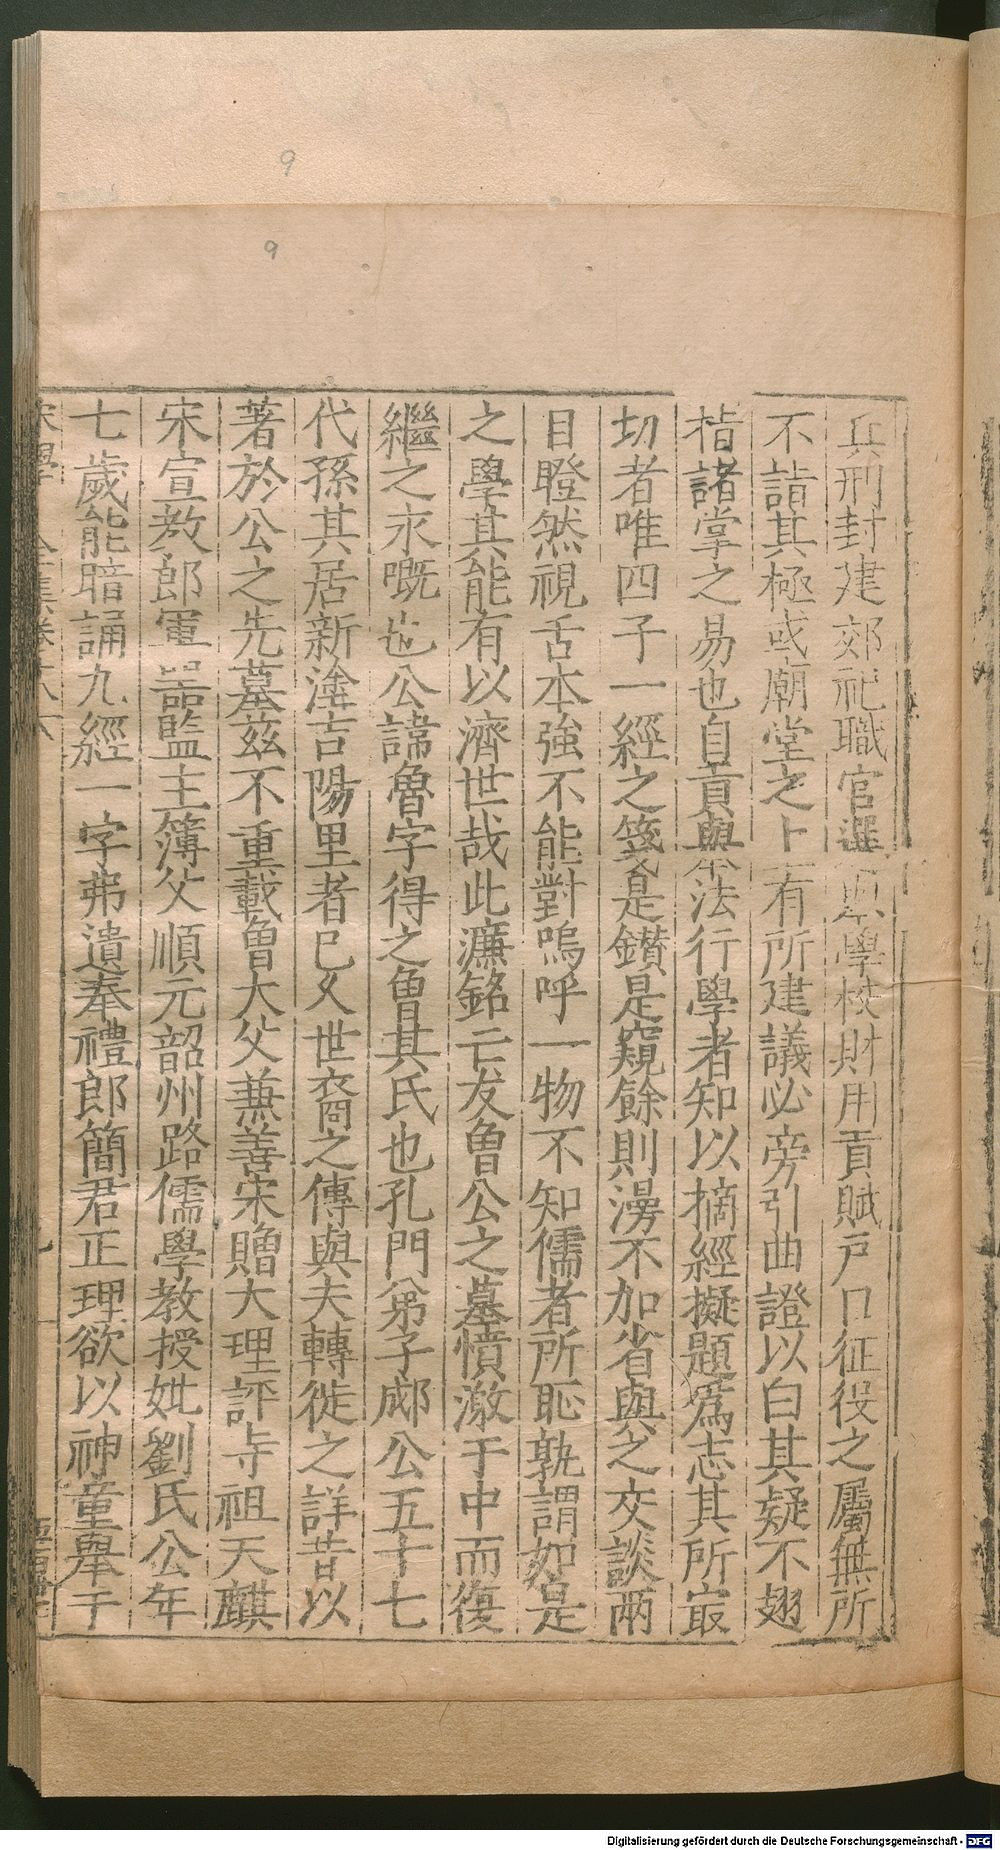 9
9
兵刑封建郊祀職官選舉學校財用貢賦戶口征役之屬無所
不詣其極或廟堂之上有所建議必旁引曲證以白其疑不翅
指諸掌之易也自貢舉法行學者知以摘經擬題爲志其所㝡
切者唯四子一經之箋是鑚是窺餘則漫不加省與之交談兩
目瞪然視舌本強不能對嗚呼一物不知儒者所恥孰謂如是
之學其能有以濟世哉此濂銘亡友魯公之墓憤激于中而復
繼之永嘅也公諱魯字得之魯其氏也孔門弟子郕公五十七
代孫其居新淦吉陽里者已久世裔之傳與夫轉徙之詳昔以
著於公之先墓茲不重載曾大父兼善宋贈大理評事祖天麒
宋宣教郎軍器監主簿父順元韶州路儒學教授妣劉氏公年
七歲能暗誦九經一字弗遺奉禮郎簡君正理欲以神童舉于
宋學 全集卷十八
九
Digitalisierung gefördert durch die Deutsche Forschungsgemeinschaft - DFG